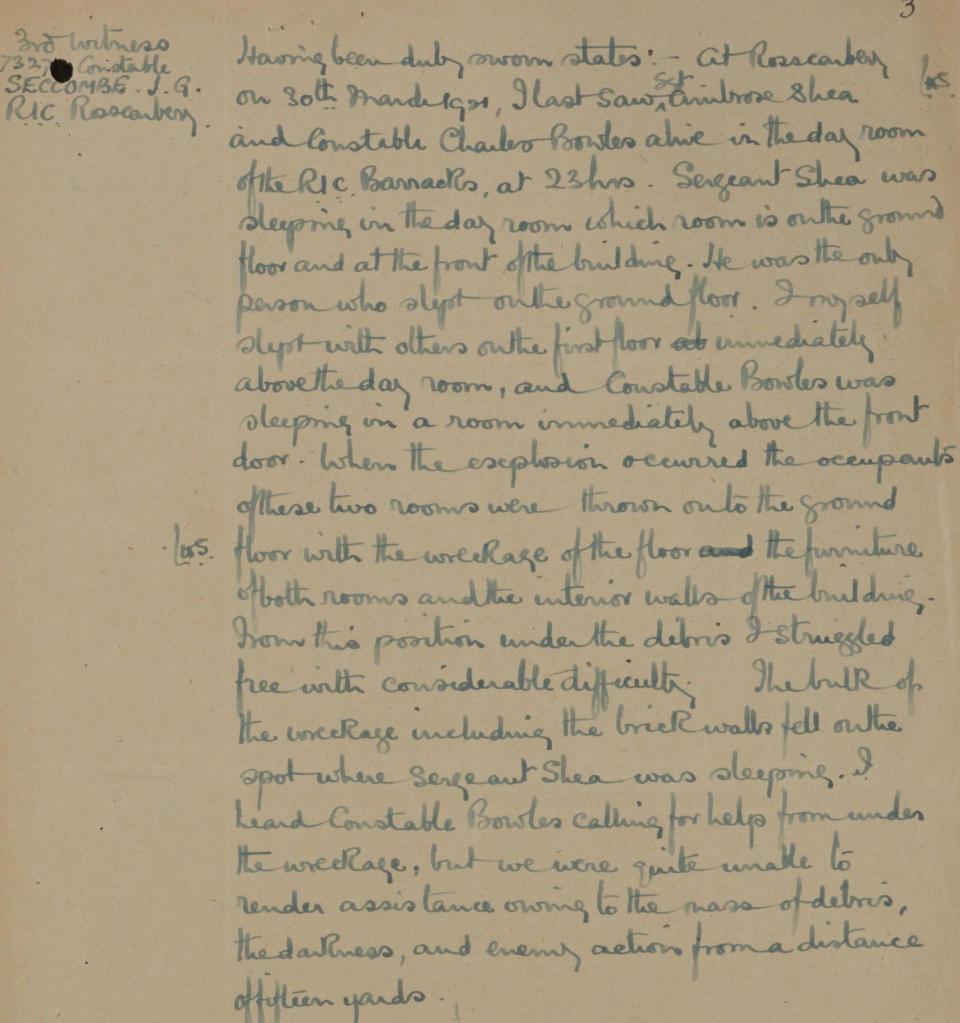 3
3rd Witness
Constable
SECCOMBE. J.G.
RIC Roscarbery.
Having been duly sworn states:- At Rosscarbery
on 30th March 1921, I last saw Sgt Ambrose Shea
and Constable Charles Bowles alive in the day room
of the RIC Barracks, at 23 hrs. Sergeant Shea was
sleeping in the day room which room is on the ground
floor and at the front of the building. He was the only
person who slept on the ground floor. I myself
slept with others on the first floor at immediately
above the day room, and Constable Bowles was
sleeping in a room immediately above the front
door. When the explosion occurred the occupants
of these two rooms were thrown onto the ground
floor with the wreckage of the floor and the furniture
of both rooms and the interior walls of the building.
From this position under the debris I struggled
free with considerable difficulty. The bulk of
the wreckage including the brick walls fell on the
spot where Sergeant Shea was sleeping. I
heard Constable Bowles calling for help from under
the wreckage, but we were quite unable to
render assistance owing to the mass of debris,
the darkness, and enemy action from a distance
of fifteen yards.